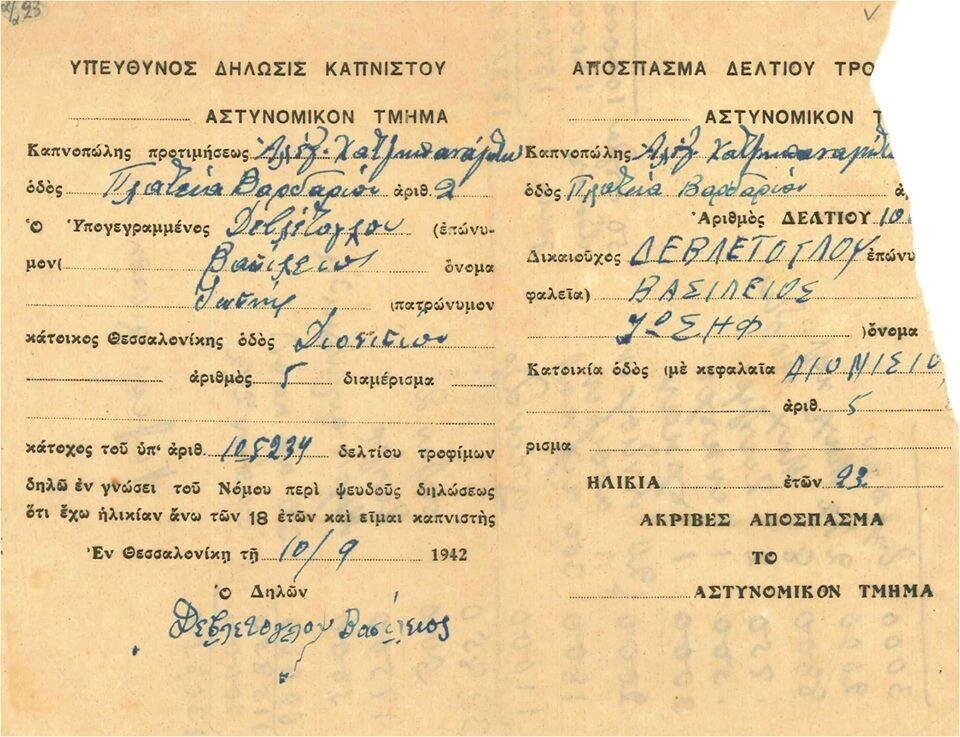 2/23
ΥΠΕΥΘΥΝΟΣ ΔΗΛΩΣΙΣ ΚΑΠΝΙΣΤΟΥ
ΑΣΤΥΝΟΜΙΚΟΝ ΤΜΗΜΑ
Καπνοπώλης προτιμήσεως Ἀλέξ. Χατζηπαναγιώτου
ὁδὸς Πλατεία Βαρδαρίου ἀριθ. 2
Ὁ Ὑπογεγραμμένος Δεβλέτογλου (ἐπώνυ-
μον( Βασίλειος ὄνομα
Ἰωσήφ (πατρώνυμον
κάτοικος Θεσσαλονίκης ὁδὸς Διονυσίου
ἀριθμὸς 5 διαμέρισμα
κάτοχος τοῦ ὑπ' ἀριθ. 105234 δελτίου τροφίμων
δηλῶ ἐν γνώσει τοῦ Νόμου περὶ ψευδοῦς δηλώσεως
ὅτι ἔχω ἡλικίαν ἄνω τῶν 18 ἐτῶν καὶ εἶμαι καπνιστὴς
Ἐν Θεσσαλονίκῃ τῇ 10/9 1942
Ὁ Δηλῶν
Δεβλετογλου Βασίλειος
ΑΠΟΣΠΑΣΜΑ ΔΕΛΤΙΟΥ ΤΡΟ
ΑΣΤΥΝΟΜΙΚΟΝ Τ
Καπνοπώλης Ἀλέξ. Χατζηπαναγιώτ
ὁδὸς Πλατεία Βαρδαρίου ἀ
Ἀριθμὸς ΔΕΛΤΙΟΥ 10
Δικαιοῦχος ΔΕΒΛΕΤΟΓΛΟΥ ἐπώνυ
φαλεῖα) ΒΑΣΙΛΕΙΟΣ
ΙΩΣΗΦ )ὄνομα
Κατοικία ὁδὸς (μὲ κεφαλαῖα ΔΙΟΝΙΣΙΟ
ἀριθ. 5
ρισμα
ΗΛΙΚΙΑ ἐτῶν 23
ΑΚΡΙΒΕΣ ΑΠΟΣΠΑΣΜΑ
ΤΟ
ΑΣΤΥΝΟΜΙΚΟΝ ΤΜΗΜΑ